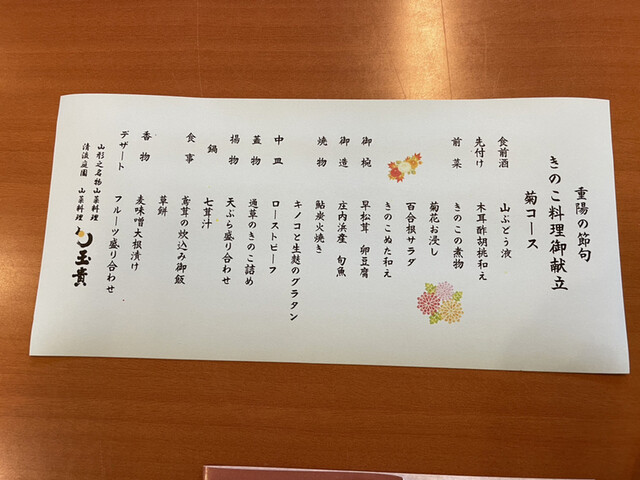 重陽の節句
きのこ料理御献立
菊コース
食前酒 山ぶどう液
先付け 木耳酢胡桃和え
前菜 きのこの煮物
菊花お浸し
百合根サラダ
きのこぬた和え
御椀 早松茸 卵豆腐
御造 庄内浜産 旬魚
焼物 鮎炭火焼き
キノコと生麩のグラタン
中皿 ローストビーフ
蓋物 通草のきのこ詰め
揚物 天ぷら盛り合わせ
鍋 七茸汁
食事 鳶茸の炊込み御飯
草餅
香物 麦味噌大根漬け
デザート フルーツ盛り合わせ
山形之名物山菜料理
清流庭園 山菜料理 玉貴